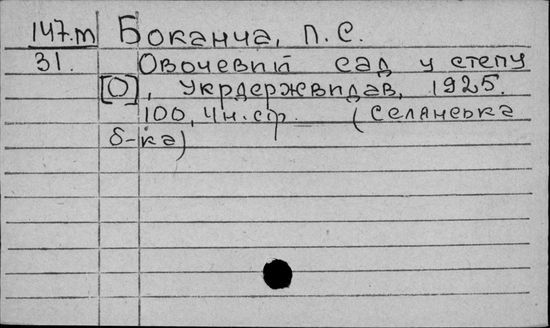 147.m Боканча, П. С.
31. Овочевий сад у степу
[О], Укрдержвидав, 1925.
100, 4н. ср. (Селянська
б-ка)